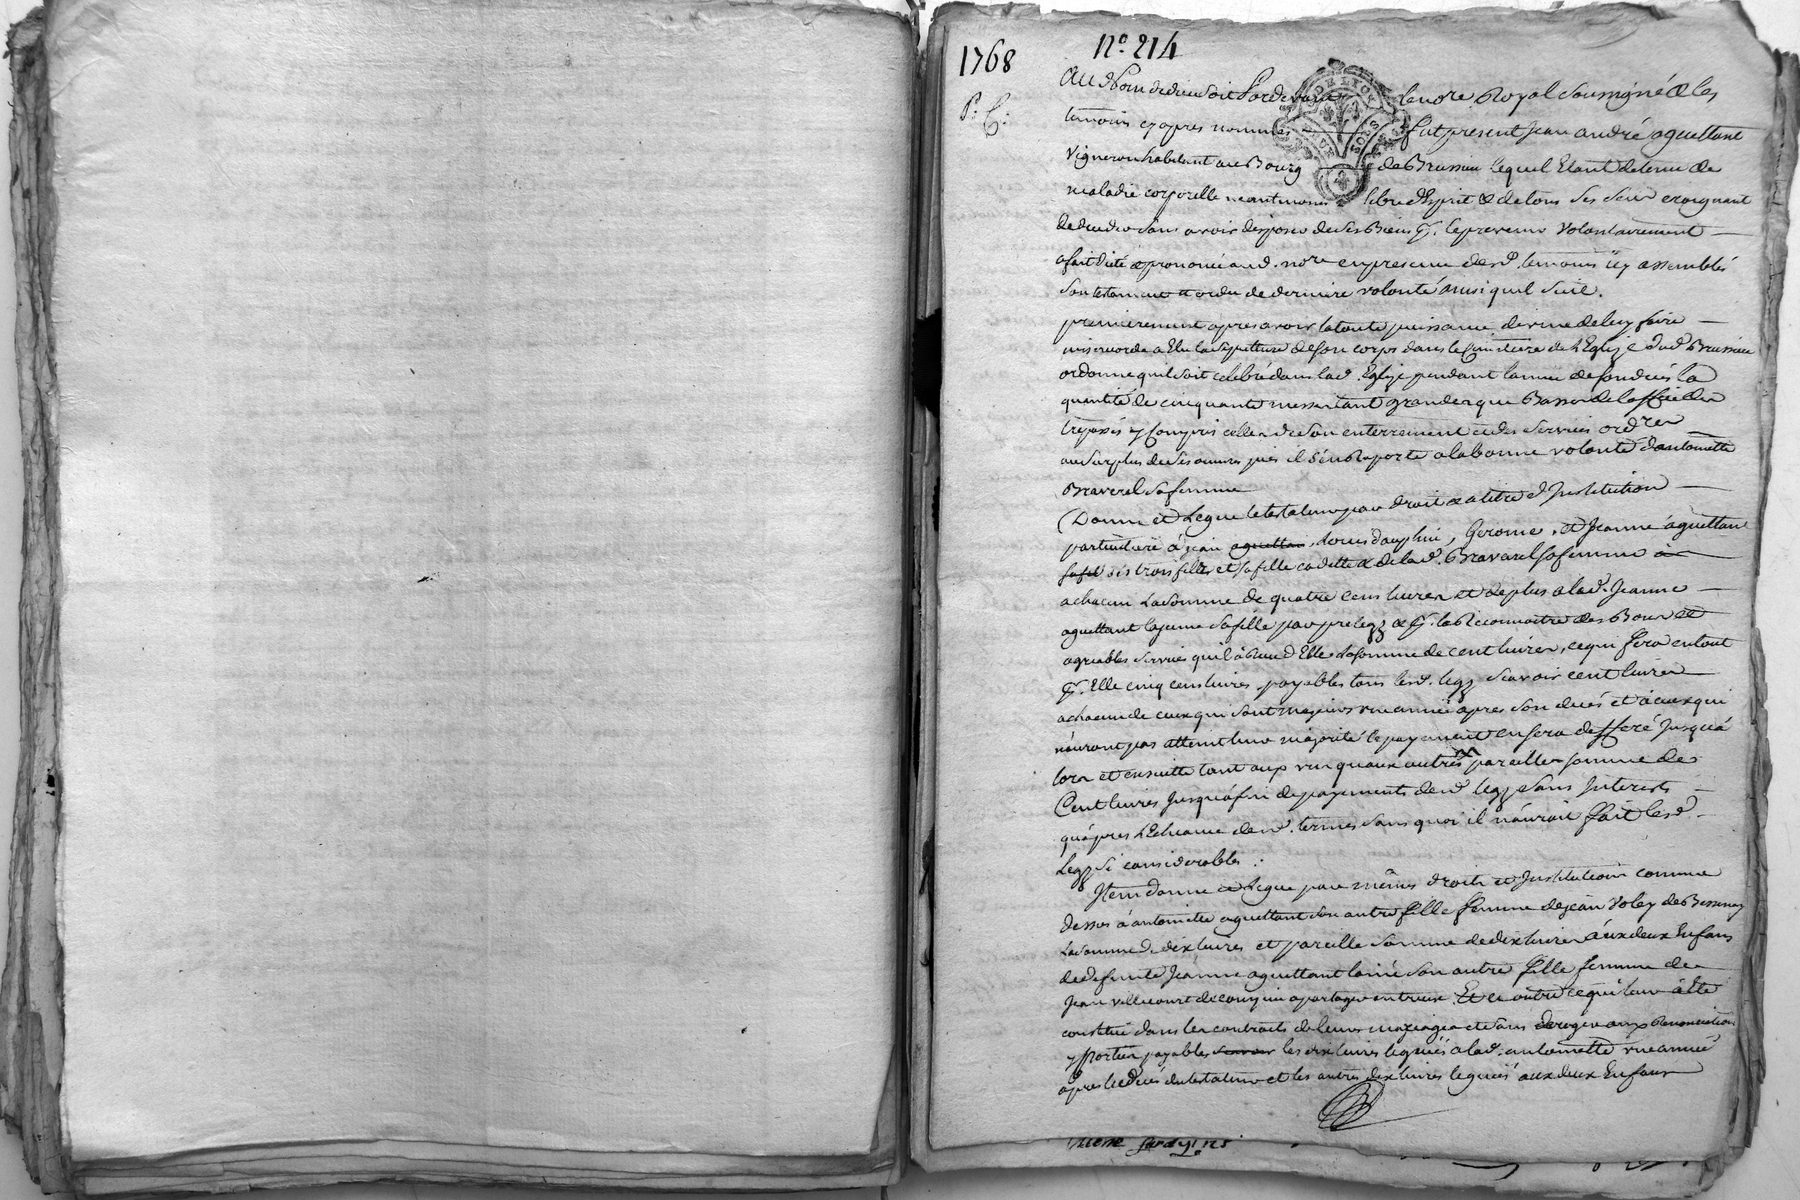 1768
N.° 214
P: C:
DE LYON
SOLS
Au Nom de dieu soit Pardevant le notre Royal soussigné & les
temoins cy apres nommés fut present Jean andré aguettant
vigneron habitant au Bourg de Brussieu lequel Etant detenu de
maladie corporelle neantmoins libre d'Esprit & de tous ses sens craignant
de deceder sans avoir disposé de ses Biens pr. le prevenir volontairement
a fait dicté & prononcé aud. notre en presence desd. temoins icy assemblés
son testament et ordce de derniere volonté ainsi quil suit.
premierement apres avoir la toute puissance divine de luy faire
misericorde a Elu la sepulture de son corps dans le Cimetiere de l'Eglize dud. Brussieu
ordonne quil soit celebré dans lad. Eglize pendant l'année de son decès la
quantité de cinquante messes tant grandes que Basses de l'office des
trepassés y compris celles de son enterrement et des services ordres
au surplus de ses œuvres pies il s'en Raporte a la bonne volonté d'antoinette
Braverel sa femme
Donne et Legue le testateur par droit & a titre d'Institution
particuliere à jean aguettan, Louis dauphin, Gerome, et Jeanne aguettant
sa fil ses trois fils et sa fille cadette & de lad. Bravarel sa femme à
a chacun La somme de quatre cens livres et de plus a lad. Jeanne
aguettant la jeune sa fille par prelegz & pr. la Reconnoitre des Bons et
agreables services quil à Recu d'Elle la somme de cent livres, ce qui fera en tout
pr. Elle cinq cens livres payables tous lesd. legz scavoir cent livres
a chacun de ceux qui sont majeurs une année apres son decés et à ceux qui
n'auront pas atteint leur majorité le payement en sera differé jusqu'a
lors et ensuitte tant aux uns qu'aux autres pareille somme de
Cent livres jusqu'a fin de payements desd. legz sans Interests
qu'apres l'Echeance desd. termes sans quoi il n'auroit fait lesd.
Legz si considerables.
Item donne et Legue par mêmes droits et Institution comme
dessus à antoinette aguettant son autre fille femme de jean Voley de Bessenay
La somme de dix livres et pareille somme de dix livres aux deux Enfans
de defunte Jeanne aguettant lainé son autre fille femme de
Jean villecourt de courzieu a partager entreux. Et ce outre ce qui leur a Eté
constitué dans les contrats de leurs mariages et sans deroger aux Renonciations
y portées payables scavoir les dix livres leguées a lad. antoinette une année
apres le decés du testateur et les autres dix livres leguées aux deux Enfans